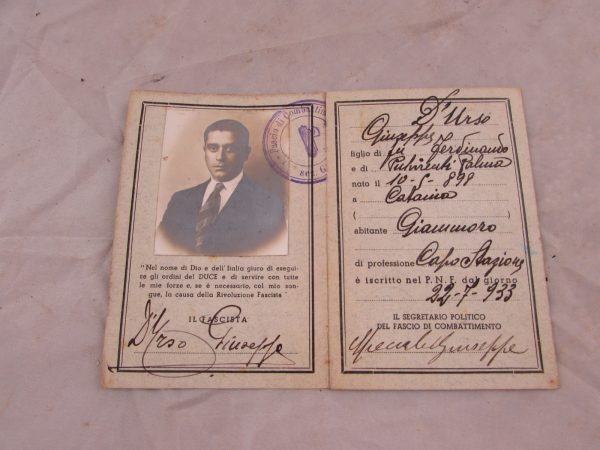 Fascio di Comba
"Nel nome di Dio e dell' Italia giuro di esegui-
re gli ordini del DUCE e di servire con tutte
le mie forze e, se è necessario, col mio san-
gue, la causa della Rivoluzione Fascista
IL FASCISTA
D'Urso Giuseppe
D'Urso
Giuseppe
figlio di fu Ferdinando
e di Pulvirenti Palma
nato il 10-5-898
a Catania
(
)
abitante Giammoro
di professione Capo Stazione
è iscritto nel P.N.F. dal giorno
22-7-933
IL SEGRETARIO POLITICO
DEL FASCIO DI COMBATTIMENTO
Giuseppe